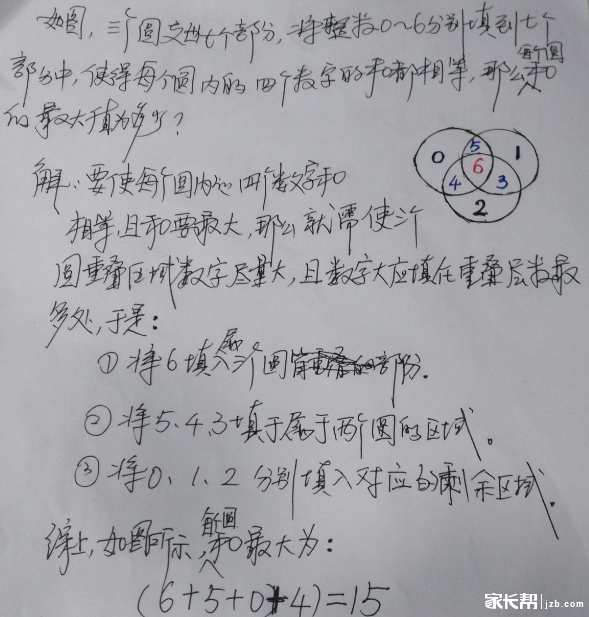 如图,三个圆交出七个部分,将整数0~6分别填到七个
部分中,使得每个圆内的四个数字的和都相等,那么每个圆和
的最大值为多少?
0
5
1
6
4
3
2
解:要使每个圆内的四个数字和
相等,且和要最大,那么就需使三个
圆重叠区域数字尽量大,且数字大应填在重叠层数最
多处,于是:
①将6填入属三个圆部分.
②将5、4、3填于属于两个圆的区域。
③将0、1、2分别填入对应的剩余区域.
综上,如图所示,每个圆和最大为:
(6+5+0+4)=15
家长帮 jzb.com